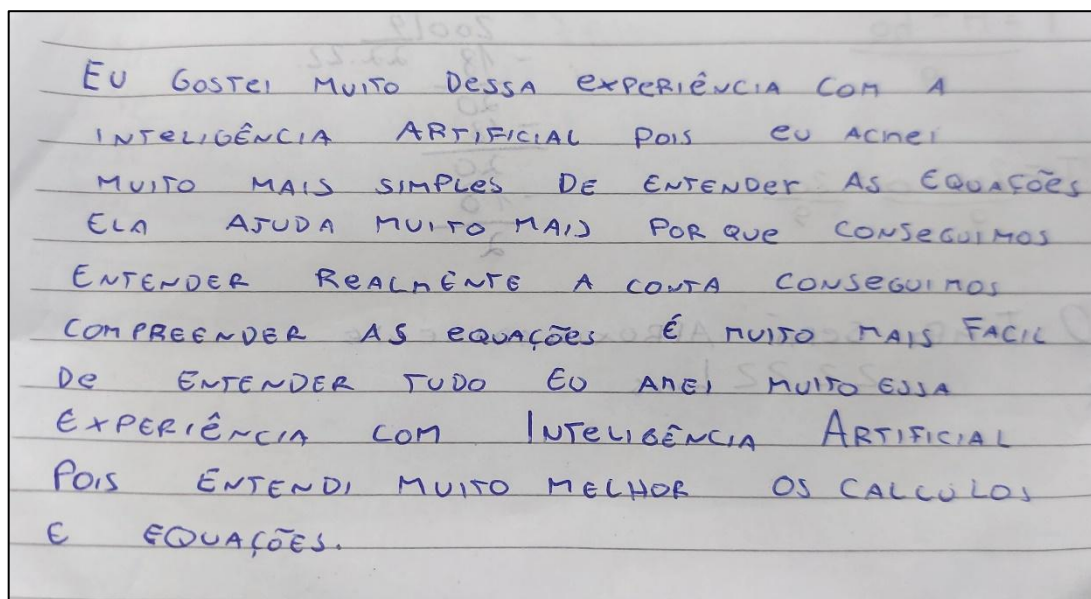 EU GOSTEI MUITO DESSA EXPERIÊNCIA COM A
INTELIGÊNCIA ARTIFICIAL POIS EU ACHEI
MUITO MAIS SIMPLES DE ENTENDER AS EQUAÇÕES
ELA AJUDA MUITO MAIS POR QUE CONSEGUIMOS
ENTENDER REALMENTE A CONTA CONSEGUIMOS
COMPREENDER AS EQUAÇÕES É MUITO MAIS FACIL
DE ENTENDER TUDO EU AMEI MUITO ESSA
EXPERIÊNCIA COM INTELIGÊNCIA ARTIFICIAL
POIS ENTENDI MUITO MELHOR OS CALCULOS
E EQUAÇÕES.